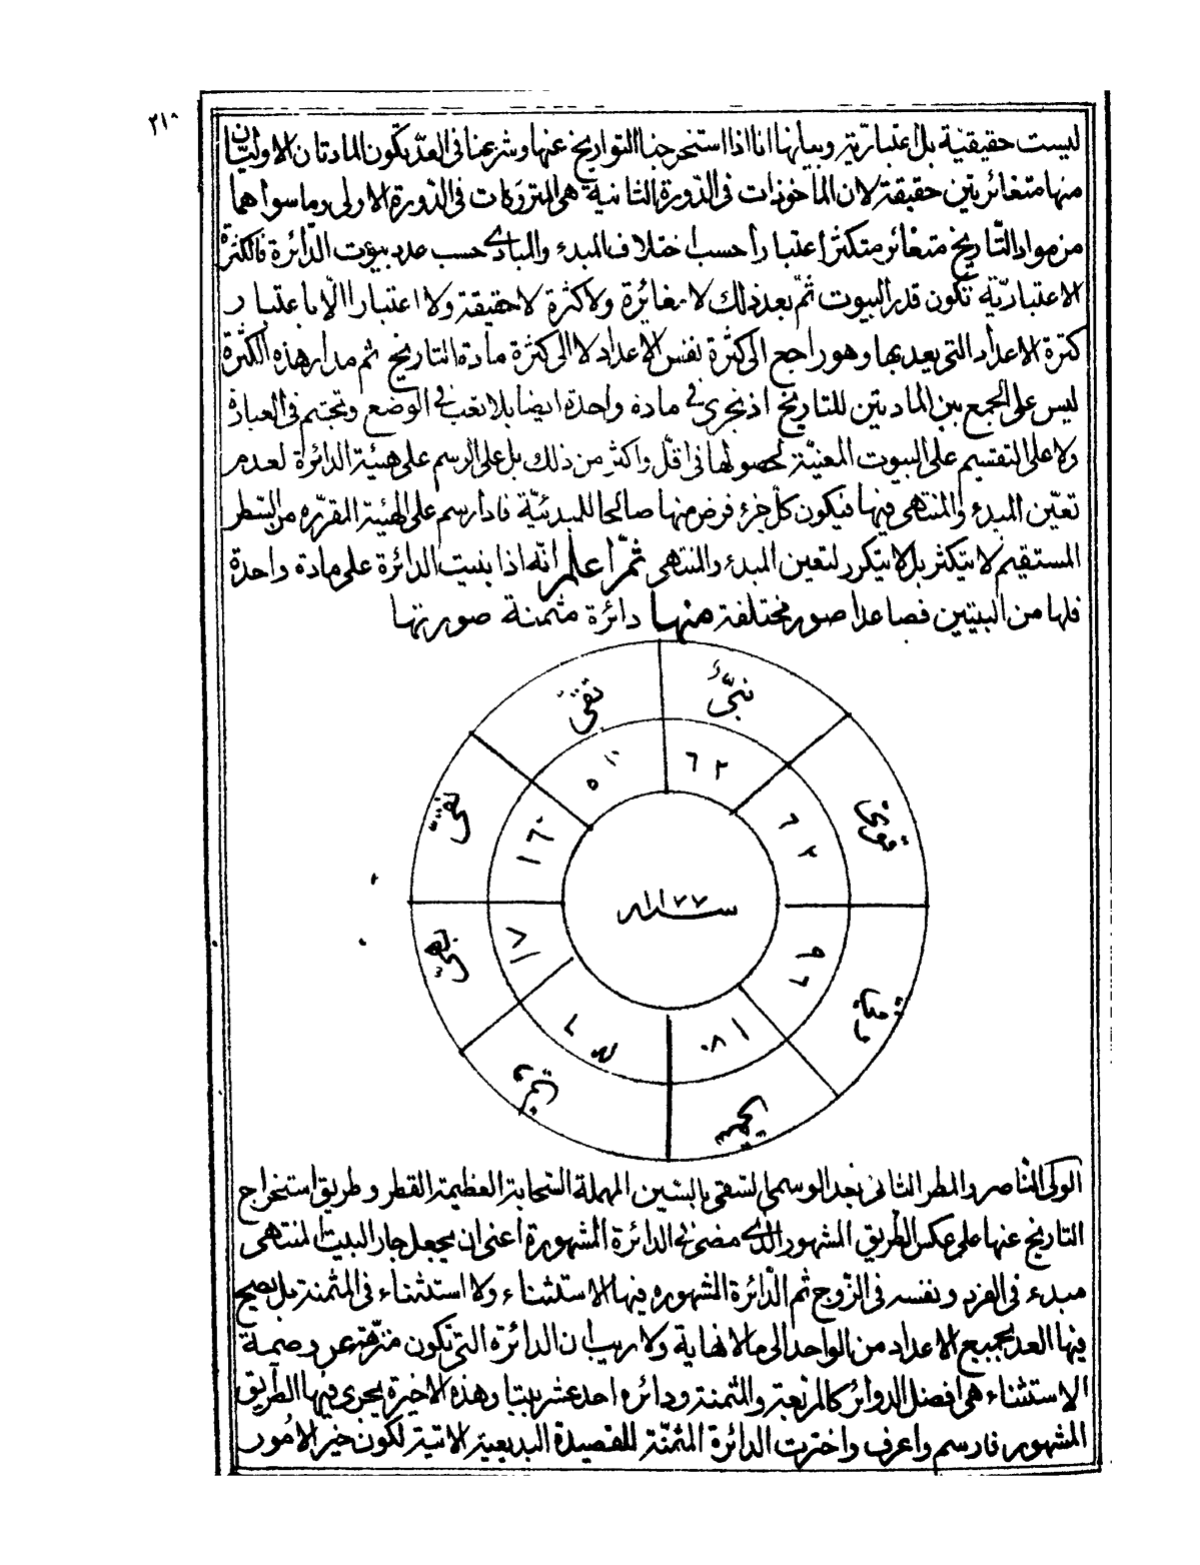 ٢١٠
ليست حقيقيّة بل اعتباريّة وبيانها انا اذا استخرجنا التواريخ عنها وشرعنا في العدّ يكون المادتان الاوليتان
منها متغائرتين حقيقة لان المأخوذات في الدّورة الثانية هي المتروكات في الدّورة الاولى وما سواهما
من مواد التّاريخ متغائر متكثر اعتباراً حسب اختلاف المبدء والمبادي حسب عدد بيوت الدّائرة فالكثرة
الاعتباريّة تكون قدر البيوت ثمّ بعد ذلك لا مغائرة ولا كثرة لا حقيقة ولا اعتبارا الّا باعتبار
كثرة الاعداد التي يعد بها وهو راجع الى كثرة نفس الاعداد لا الى كثرة مادة التاريخ ثم مدار هذه الكثرة
ليس على الجمع بين المادتين للتاريخ اذ نجري في مادة واحدة ايضا بلا تعب في الوضع وتجشم في العبارة
ولا على التقسيم على البيوت المعنيّة لحصولها في اقلّ واكثر من ذلك بل على الرسم على هيئة الدائرة لعدم
تعيّن المبدء والمنتهى فيها فيكون كلّ جزء فرض منها صالحا للمبدئيّة فاذا رسم على الهيئة المقرّره من السّطر
المستقيم لا يتكثر بل لا يتكرر لتعين المبدء والمنتهى ثمّ اعلم انّه اذا بنيت الدائرة على مادة واحدة
فلها من البيتين فصاعدا صور مختلفة منها دائرة مثمنة صورتها
نجيّ
تقيّ
نقيّ
بهيّ
٦٢
٦٢
٩٦
سنه ١١٧٧
الوكى الناصر والمطر الثاني نجد الوسمى لسقى بالسّين المهملة السّحابة العظيمة القطر وطريق استخراج
التاريخ عنها على عكس الطّريق المشهور الّذي مضى في الدائرة المشهورة اعنى ان يجعل جار البيت المنتهى
مبدء في الفرد ونفسه في الزّوج ثم الدّائرة المشهوره فيها الاستثناء ولا استثناء في المثمنة بل يصح
فيها العد بجميع الاعداد من الواحد الى ما لا نهاية ولا ريب ان الدائرة التي تكون منزّهة عن وصمة
الاستثناء هي افضل الدوائر كالمربّعة والمثمنة ودائره احد عشر بيتا وهذه الاخيرة يجري فيها الطّريق
المشهور فارسم واعرف واخترت الدائرة المثمّنة للقصيدة البديعية الاتية لكون خير الامور